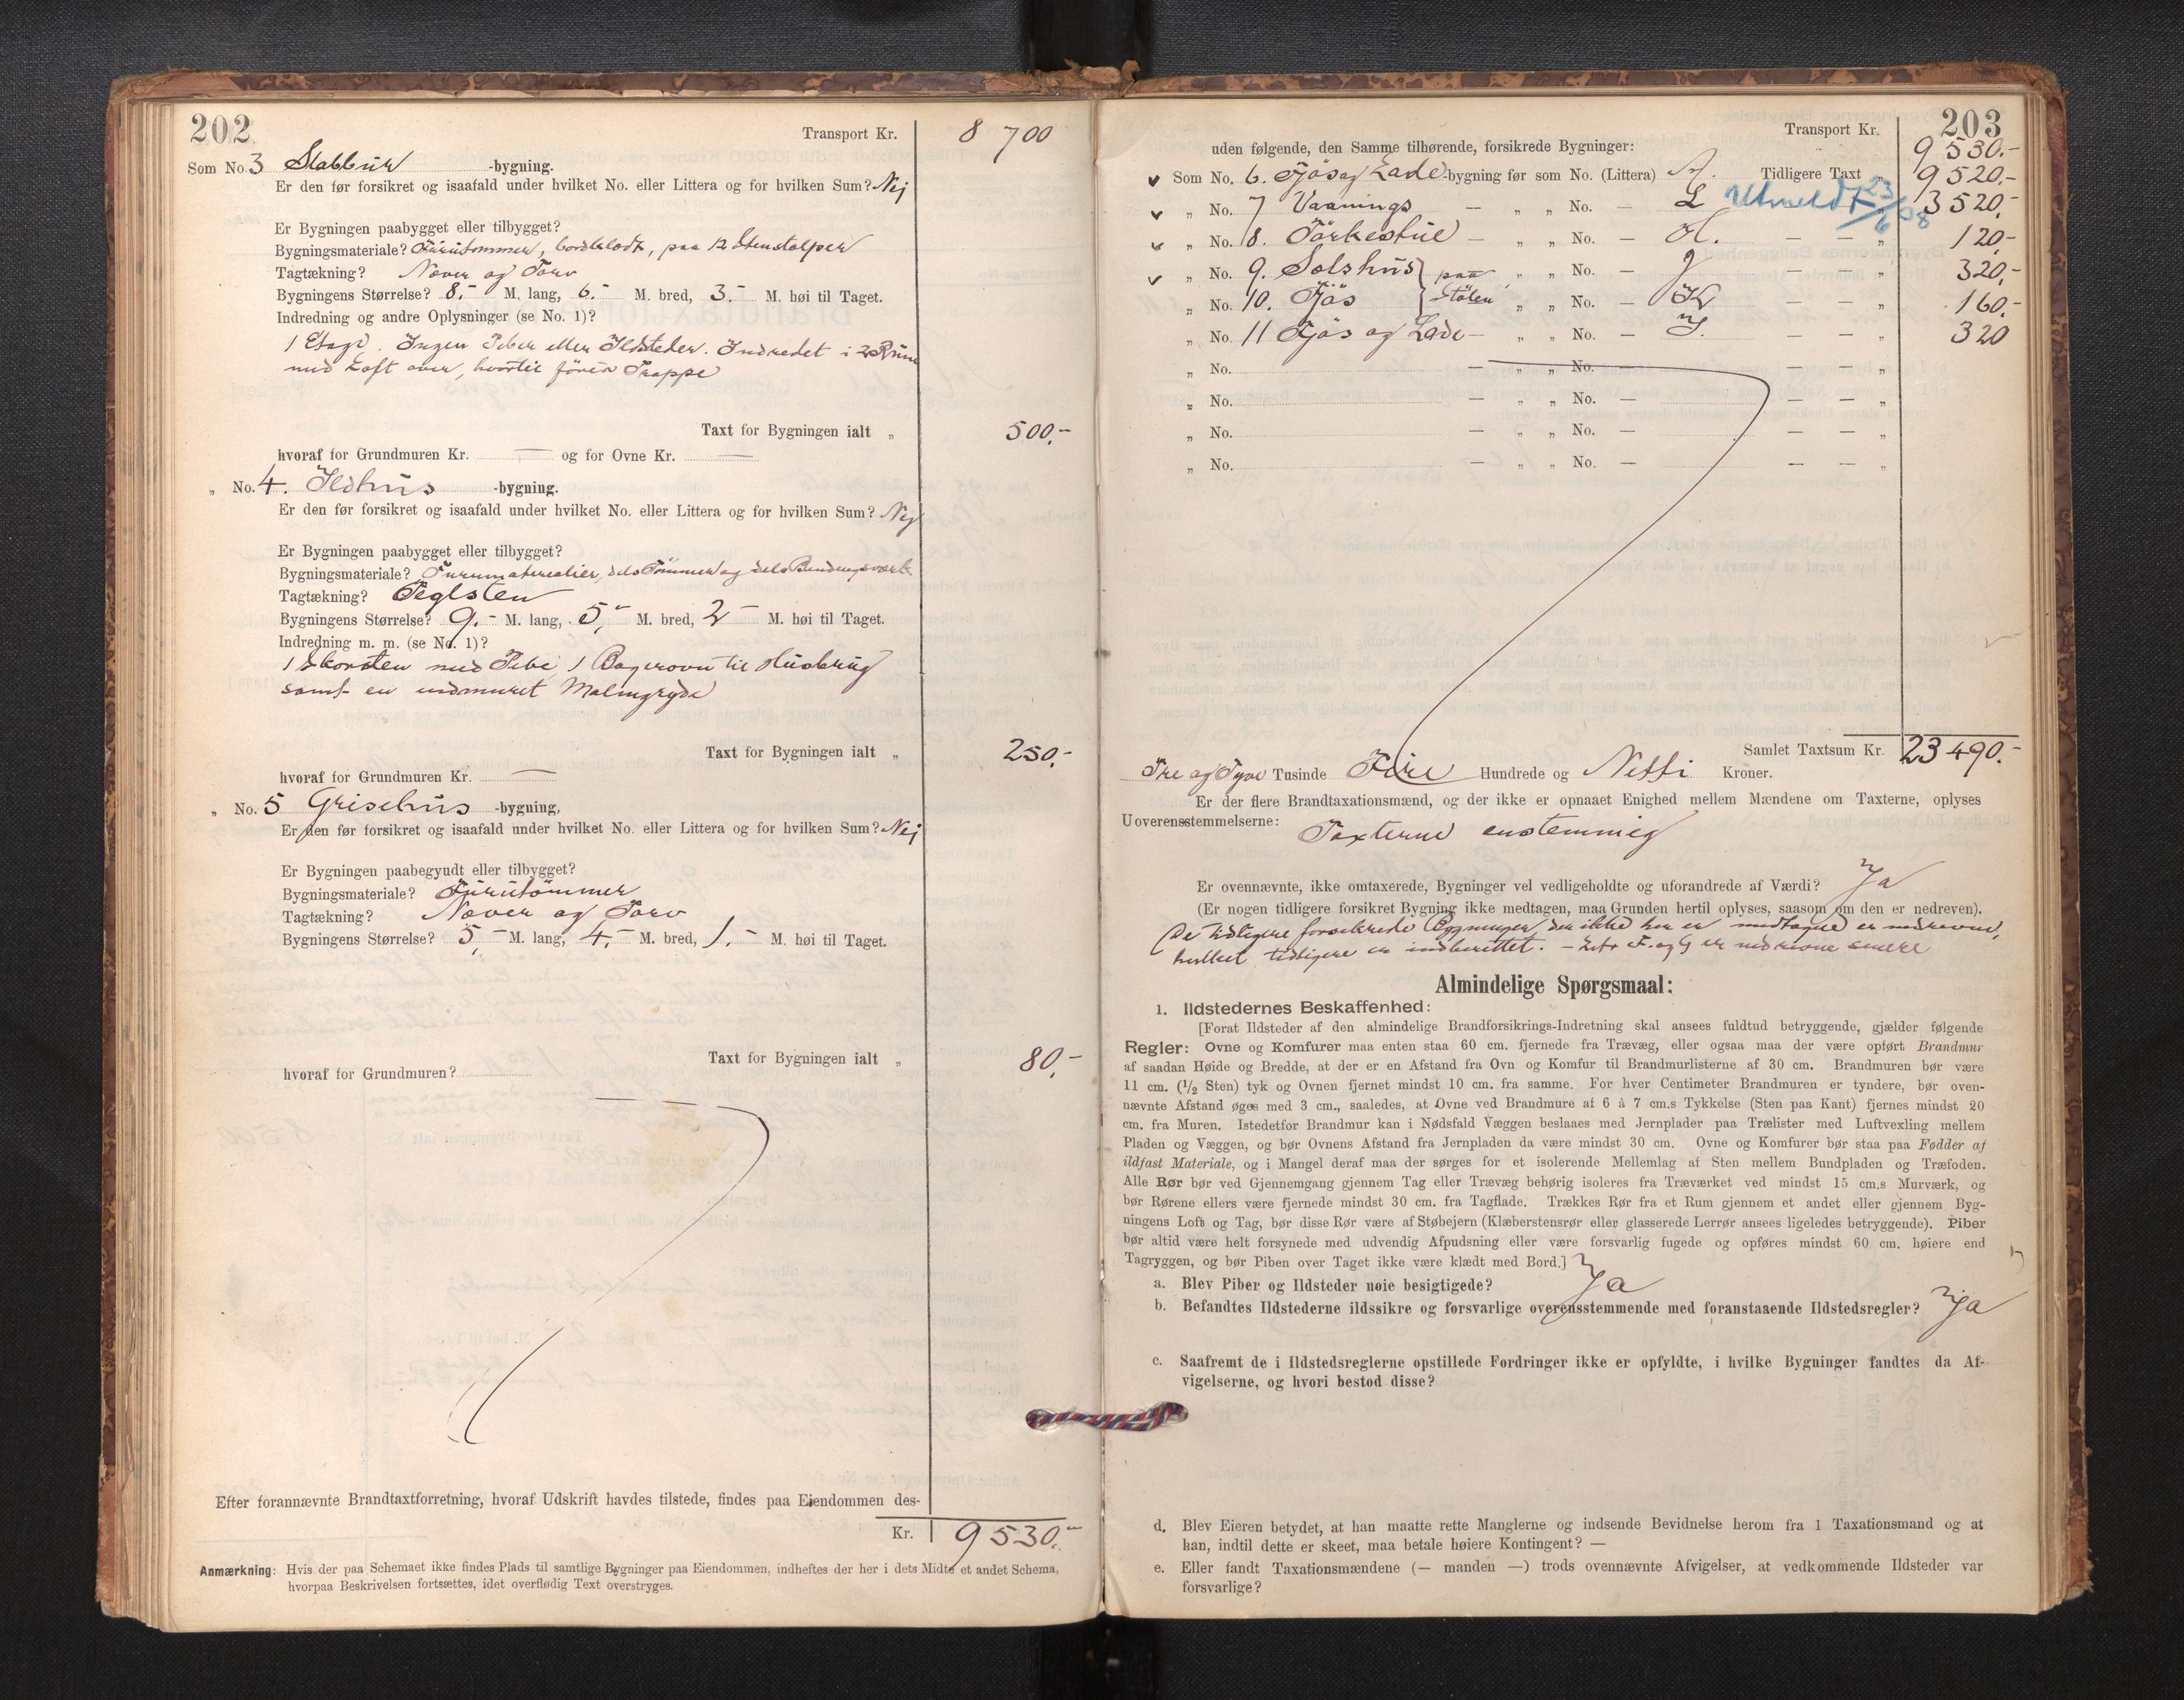 202
Transport Kr. 8 700
Som No. 3 Stabbur -bygning.
Er den før forsikret og isaafald under hvilket No. eller Littera og for hvilken Sum? Nej
Er Bygningen paabygget eller tilbygget?
Bygningsmateriale? Furutømmer, bordklædt, paa 12 Stenstolper
Tagtækning? Næver og Torv
Bygningens Størrelse? 8.- M. lang, 6.- M. bred, 3.- M. høi til Taget.
Indredning og andre Oplysninger (se No. 1)?
1 Etage. Ingen Piber eller Ildsteder. Indredet i 2 Rum
med Loft over, hvortil fører Trappe
Taxt for Bygningen ialt „ 500.-
hvoraf for Grundmuren Kr. — og for Ovne Kr. —
„ No. 4. Ildhus -bygning.
Er den før forsikret og isaafald under hvilket No. eller Littera og for hvilken Sum? Nej
Er Bygningen paabygget eller tilbygget?
Bygningsmateriale? Furumaterialier, dels Tømmer og dels Bindingsværk
Tagtækning? Teglsten
Bygningens Størrelse? 9.- M. lang, 5,- M. bred, 2- M. høi til Taget.
Indredning m. m. (se No. 1)?
1 Skorsten med Pibe 1 Bagerovn til Husbrug
samt en indmuret Malmgryde
Taxt for Bygningen ialt „ 250.-
hvoraf for Grundmuren Kr. —
„ No. 5 Grisehus -bygning,
Er den før forsikret og isaafald under hvilket No. eller Littera og for hvilken Sum? Nej
Er Bygningen paabegyndt eller tilbygget?
Bygningsmateriale? Furutømmer
Tagtækning? Næver og Torv
Bygningens Størrelse? 5,- M. lang, 4,- M. bred, 1.- M. høi til Taget.
Taxt for Bygningen ialt „ 80,-
hvoraf for Grundmuren?
Efter forannævnte Brandtaxtforretning, hvoraf Udskrift havdes tilstede, findes paa Eiendommen des-
Kr. 9530.-
Anmærkning: Hvis der paa Schemaet ikke findes Plads til samtlige Bygninger paa Eiendommen, indheftes der her i dets Midte et andet Schema,
hvorpaa Beskrivelsen fortsættes, idet overflødig Text overstryges.
203
Transport Kr. 9530.-
uden følgende, den Samme tilhørende, forsikrede Bygninger:
Som No. 6. Fjøs og Lade -bygning før som No. (Littera) A. Tidligere Taxt „ 9520,-
„ No. 7 Vaanings — „ „ No. — L Utmeldt 23/6 08 3520,-
„ No. 8. Tørkestue — „ „ No. — H. — — „ 120-
„ No. 9. Sælshus } paa „ „ No. — J — — „ 320,-
„ No. 10. Fjøs } Stølen „ „ No. — K — — „ 160.-
„ No. 11 Fjøs og Lade — „ „ No. — I. — — „ 320
„ No. — „ „ No. — — — „
„ No. — „ „ No. — — — „
„ No. — „ „ No. — — — „
„ No. — „ „ No. — — — „
Samlet Taxtsum Kr. 23490.-
Tre og Tyve Tusinde Fire Hundrede og Netti Kroner.
Er der flere Brandtaxationsmænd, og der ikke er opnaaet Enighed mellem Mændene om Taxterne, oplyses
Uoverensstemmelserne: Taxterne enstemmig
Er ovennævnte, ikke omtaxerede, Bygninger vel vedligeholdte og uforandrede af Værdi? Ja
(Er nogen tidligere forsikret Bygning ikke medtagen, maa Grunden hertil oplyses, saasom om den er nedreven).
De tidligere forsikrede Bygninger, der ikke her er medtagne er nedrevne,
hvilket tidligere er indberettet. - Litr F. og G er nedrevne senere
Almindelige Spørgsmaal:
1. Ildstedernes Beskaffenhed:
[Forat Ildsteder af den almindelige Brandforsikrings-Indretning skal ansees fuldtud betryggende, gjælder følgende
Regler: Ovne og Komfurer maa enten staa 60 cm. fjernede fra Trævæg, eller ogsaa maa der være opført Brandmur
af saadan Høide og Bredde, at der er en Afstand fra Ovn og Komfur til Brandmurlisterne af 30 cm. Brandmuren bør være
11 cm. (1/2 Sten) tyk og Ovnen fjernet mindst 10 cm. fra samme. For hver Centimeter Brandmuren er tyndere, bør oven-
nævnte Afstand øges med 3 cm., saaledes, at Ovne ved Brandmure af 6 à 7 cm.s Tykkelse (Sten paa Kant) fjernes mindst 20
cm. fra Muren. Istedetfor Brandmur kan i Nødsfald Væggen beslaaes med Jernplader paa Trælister med Luftvexling mellem
Pladen og Væggen, og bør Ovnens Afstand fra Jernpladen da være mindst 30 cm. Ovne og Komfurer bør staa paa Fødder af
ildfast Materiale, og i Mangel deraf maa der sørges for et isolerende Mellemlag af Sten mellem Bundpladen og Træfoden.
Alle Rør bør ved Gjennemgang gjennem Tag eller Trævæg behørig isoleres fra Træværket ved mindst 15 cm.s Murværk, og
bør Rørene ellers være fjernede mindst 30 cm. fra Tagflade. Trækkes Rør fra et Rum gjennem et andet eller gjennem Byg-
ningens Loft og Tag, bør disse Rør være af Støbejern (Klæberstensrør eller glasserede Lerrør ansees ligeledes betryggende). Piber
bør altid være helt forsynede med udvendig Afpudsning eller være forsvarlig fugede og opføres mindst 60 cm. høiere end
Tagryggen, og bør Piben over Taget ikke være klædt med Bord.]
a. Blev Piber og Ildsteder nøie besigtigede? Ja
b. Befandtes Ildstederne ildssikre og forsvarlige overensstemmende med foranstaaende Ildstedsregler? Ja
c. Saafremt de i Ildstedsreglerne opstillede Fordringer ikke er opfyldte, i hvilke Bygninger fandtes da Af-
vigelserne, og hvori bestod disse?
d. Blev Eieren betydet, at han maatte rette Manglerne og indsende Bevidnelse herom fra 1 Taxationsmand og at
han, indtil dette er skeet, maa betale høiere Kontingent? —
e. Eller fandt Taxationsmændene (— manden —) trods ovennævnte Afvigelser, at vedkommende Ildsteder var
forsvarlige?